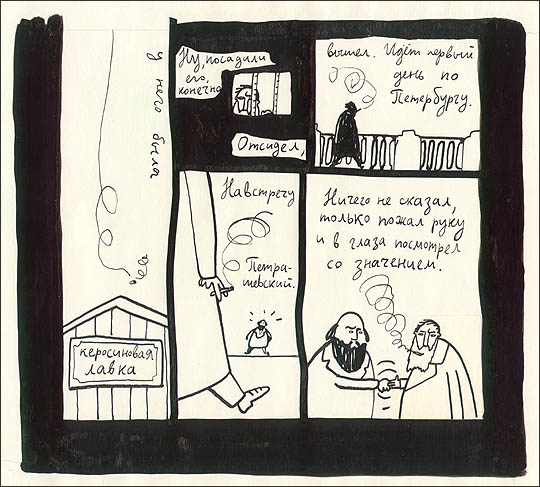 у него была
керосиновая
лавка
Ну, посадили
его,
конечно
Отсидел,
вышел. Идёт первый
день по
Петербургу.
Навстречу
Петра-
шевский.
Ничего не сказал,
только пожал руку
и в глаза посмотрел
со значением.